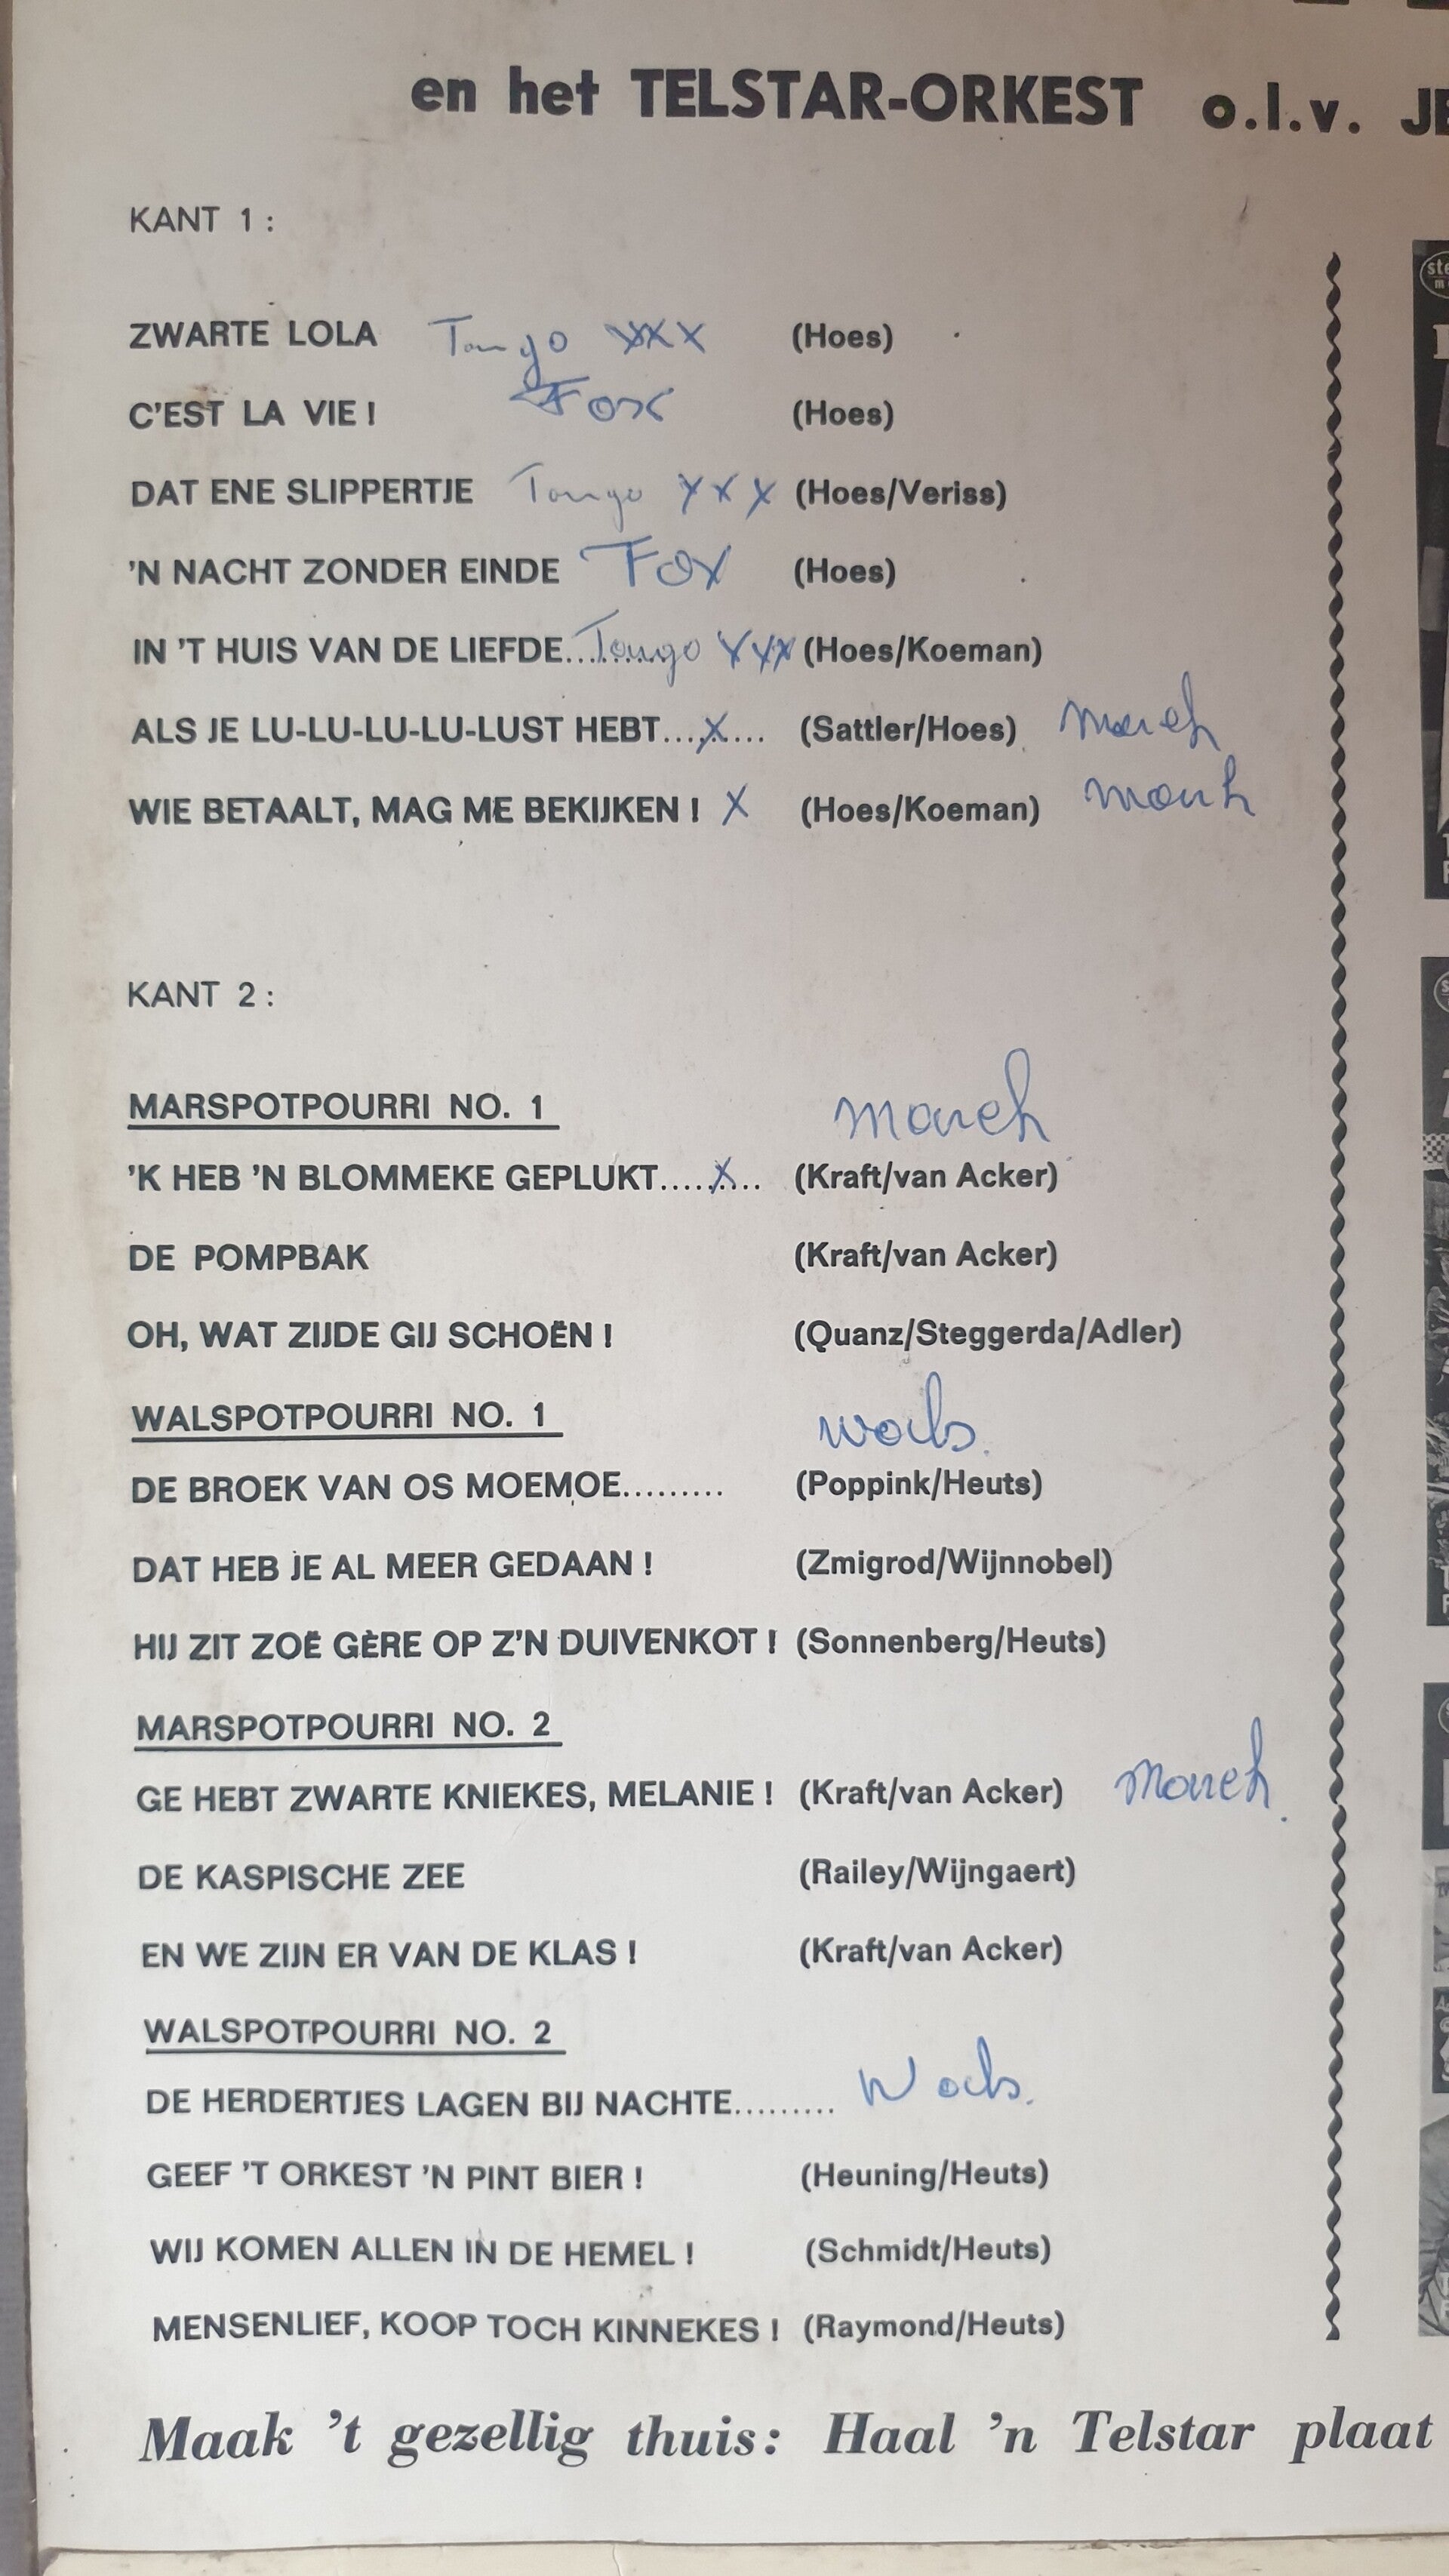 en het TELSTAR-ORKEST o.l.v. JE
KANT 1 :
ZWARTE LOLA Tango XXX (Hoes)
C'EST LA VIE ! Fox (Hoes)
DAT ENE SLIPPERTJE Tango XXX (Hoes/Veriss)
'N NACHT ZONDER EINDE Fox (Hoes)
IN 'T HUIS VAN DE LIEFDE......... Tango XXX (Hoes/Koeman)
ALS JE LU-LU-LU-LU-LUST HEBT....X.... (Sattler/Hoes) march
WIE BETAALT, MAG ME BEKIJKEN ! X (Hoes/Koeman) march
KANT 2 :
MARSPOTPOURRI NO. 1 march
'K HEB 'N BLOMMEKE GEPLUKT.....X.... (Kraft/van Acker)
DE POMPBAK (Kraft/van Acker)
OH, WAT ZIJDE GIJ SCHOËN ! (Quanz/Steggerda/Adler)
WALSPOTPOURRI NO. 1 wals.
DE BROEK VAN OS MOEMOE......... (Poppink/Heuts)
DAT HEB JE AL MEER GEDAAN ! (Zmigrod/Wijnnobel)
HIJ ZIT ZOË GÈRE OP Z'N DUIVENKOT ! (Sonnenberg/Heuts)
MARSPOTPOURRI NO. 2
GE HEBT ZWARTE KNIEKES, MELANIE ! (Kraft/van Acker) march.
DE KASPISCHE ZEE (Railey/Wijngaert)
EN WE ZIJN ER VAN DE KLAS ! (Kraft/van Acker)
WALSPOTPOURRI NO. 2
DE HERDERTJES LAGEN BIJ NACHTE......... Wals.
GEEF 'T ORKEST 'N PINT BIER ! (Heuning/Heuts)
WIJ KOMEN ALLEN IN DE HEMEL ! (Schmidt/Heuts)
MENSENLIEF, KOOP TOCH KINNEKES ! (Raymond/Heuts)
Maak 't gezellig thuis: Haal 'n Telstar plaat